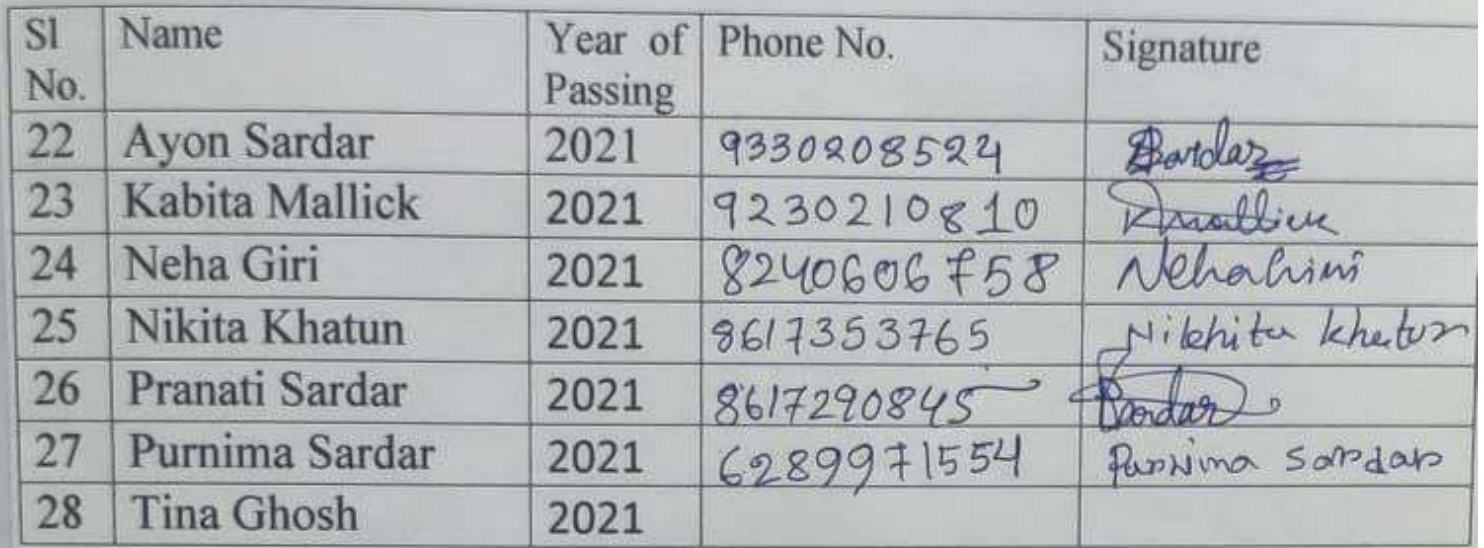 Sl No. Name Year of Passing Phone No. Signature
22 Ayon Sardar 2021 9330208524 Sardar
23 Kabita Mallick 2021 9230210810 KMallick
24 Neha Giri 2021 8240606758 Neha Giri
25 Nikita Khatun 2021 8617353765 Nikhita Khatun
26 Pranati Sardar 2021 8617290845 PSardar
27 Purnima Sardar 2021 6289971554 Purnima Sardar
28 Tina Ghosh 2021